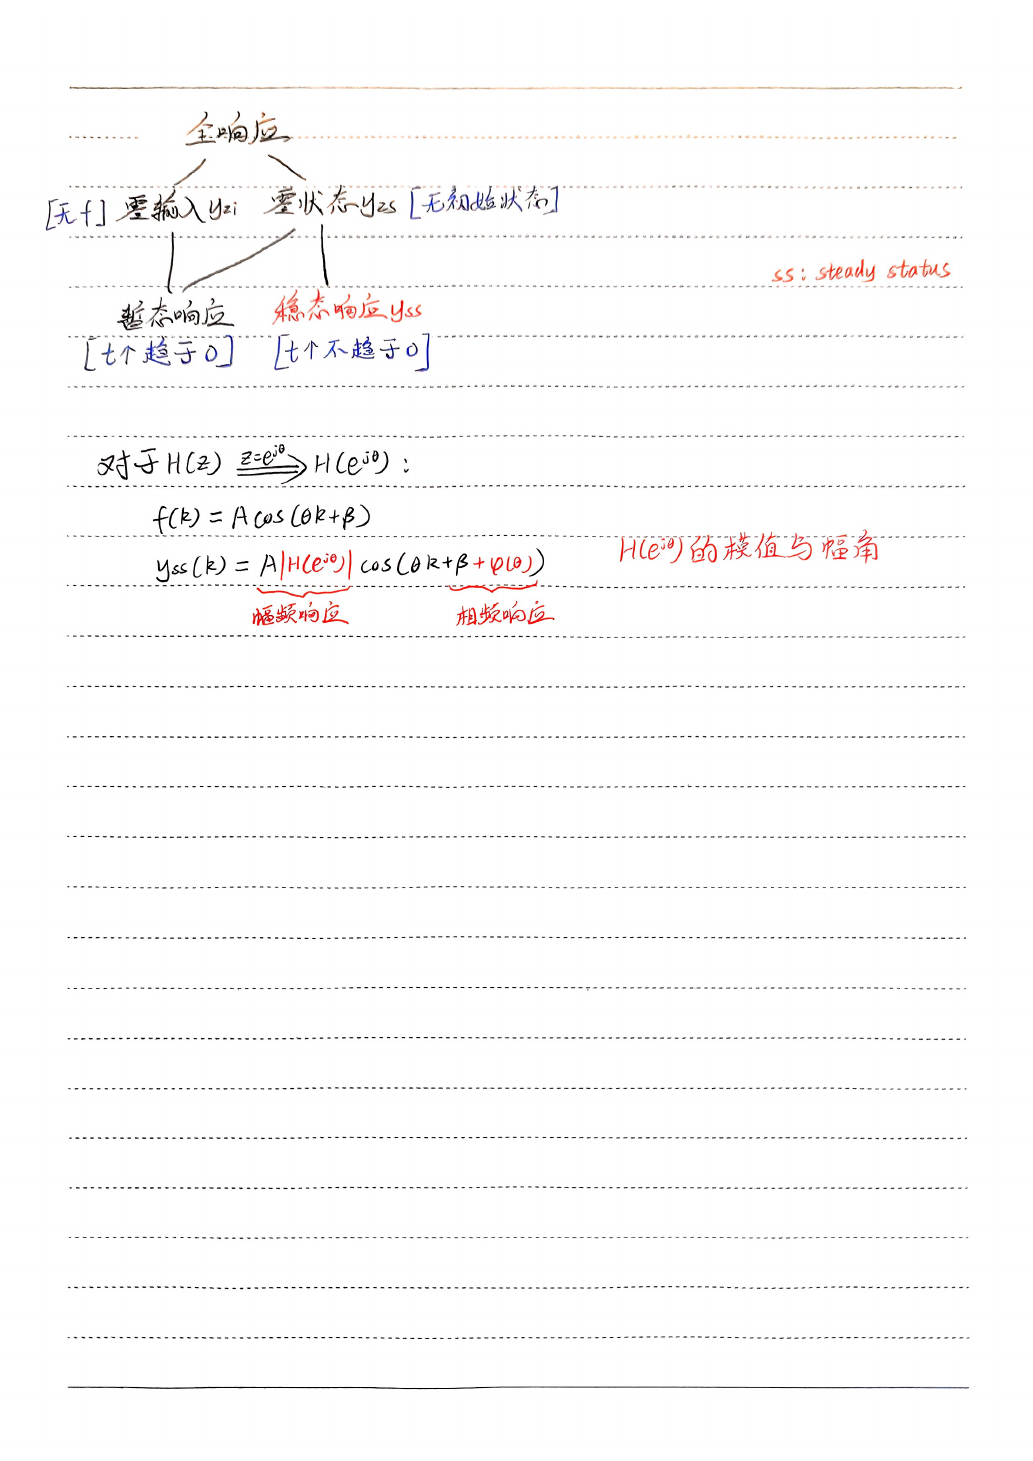 全响应
[无f] 零输入yzi 零状态yzs [无初始状态]
ss: steady status
暂态响应 稳态响应yss
[t个趋于0] [t个不趋于0]
对于H(z) z=e^{jθ} ⟹ H(e^{jθ}):
f(k) = A cos(θk+β)
yss(k) = A|H(e^{jθ})| cos(θk+β+φ(θ))
H(e^{jθ})的模值与幅角
幅频响应 相频响应